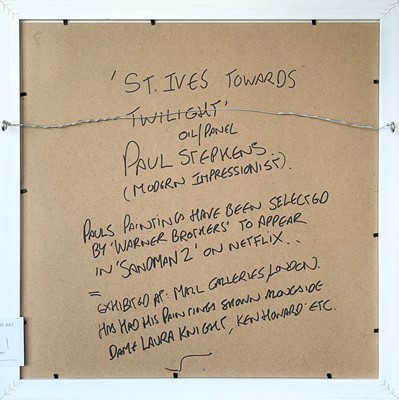 'ST. IVES TOWARDS
TWILIGHT'
OIL/PANEL
PAUL STEPHENS.
(MODERN IMPRESSIONIST).
PAULS PAINTINGS HAVE BEEN SELECTED
BY 'WARNER BROTHERS' TO APPEAR
IN 'SANDMAN 2' ON NETFLIX..
=
EXHIBITED AT: MALL GALLERIES/LONDON.
HAS HAD HIS PAINTINGS SHOWN ALONGSIDE
DAME LAURA KNIGHT, KEN HOWARD ETC.